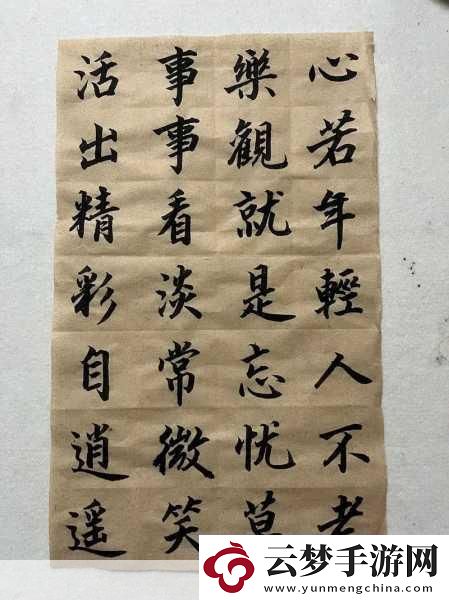 心若年輕人不老
樂觀就是忘忧草
事事看淡常微笑
活出精彩自逍遥
云梦手游网
www.yunmengchina.com